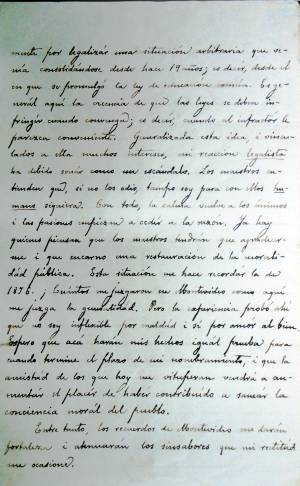 mente por legalizár una situación arbitraria que ve-
nía consolidándose desde hace 19 años; es decir, desde el
en que se promulgó la ley de educacion común. Es ge-
nerál aquí la creencia de que las leyes se deben in-
fringír cuando convenga; es decir, cuando al infractor le
parezca conveniente. Generalizada esta idea, i vincu-
lados a ella muchos intereses, mi reaccion legalista
ha debido sonár como un escándalo. Los maestros en-
tienden que, si no los odio, tampoco soy para con ellos hu-
mano siquiera. Con todo, la calma vuelve a los ánimos
i las pasiones empiezan a cedér a la razón. Ya hay
quienes piensan que los maestros tendrán que agradecer-
me i que encarno una restauración de la morali-
dad pública. Esta situación me hace recordar la de
1876. ¡Cuántos me juzgaron en Montevideo como aquí
me juzga la generalidad. Pero la experiencia probó ahí
que no soy inflexible por maldad i sí por amor al bien.
Espero que acá harán mis hechos iguál prueba para
cuando termine el plazo de mi nombramiento, i que la
amistad de los que hoy me vituperan vendrá a au-
mentár el placér de haber contribuido a sanear la
conciencia moral del pueblo.
Entre tanto, los recuerdos de Montevideo me darán
fortaleza i atenuarán los sinsabores que mi rectitud
me ocasione.